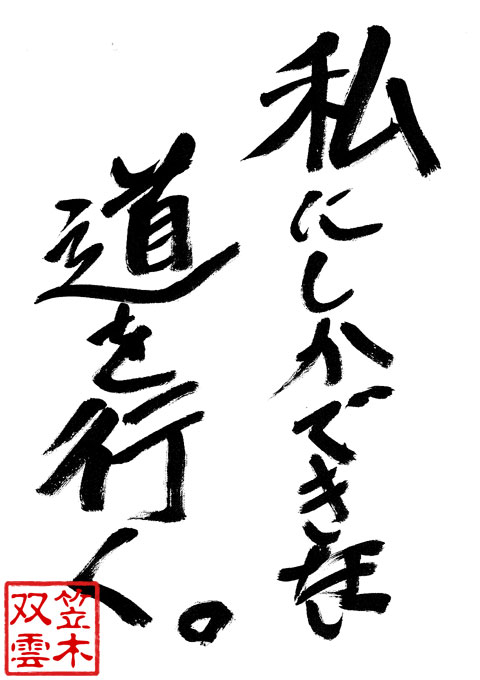 私にしかでき無い
道を行く。
笠木
双雲